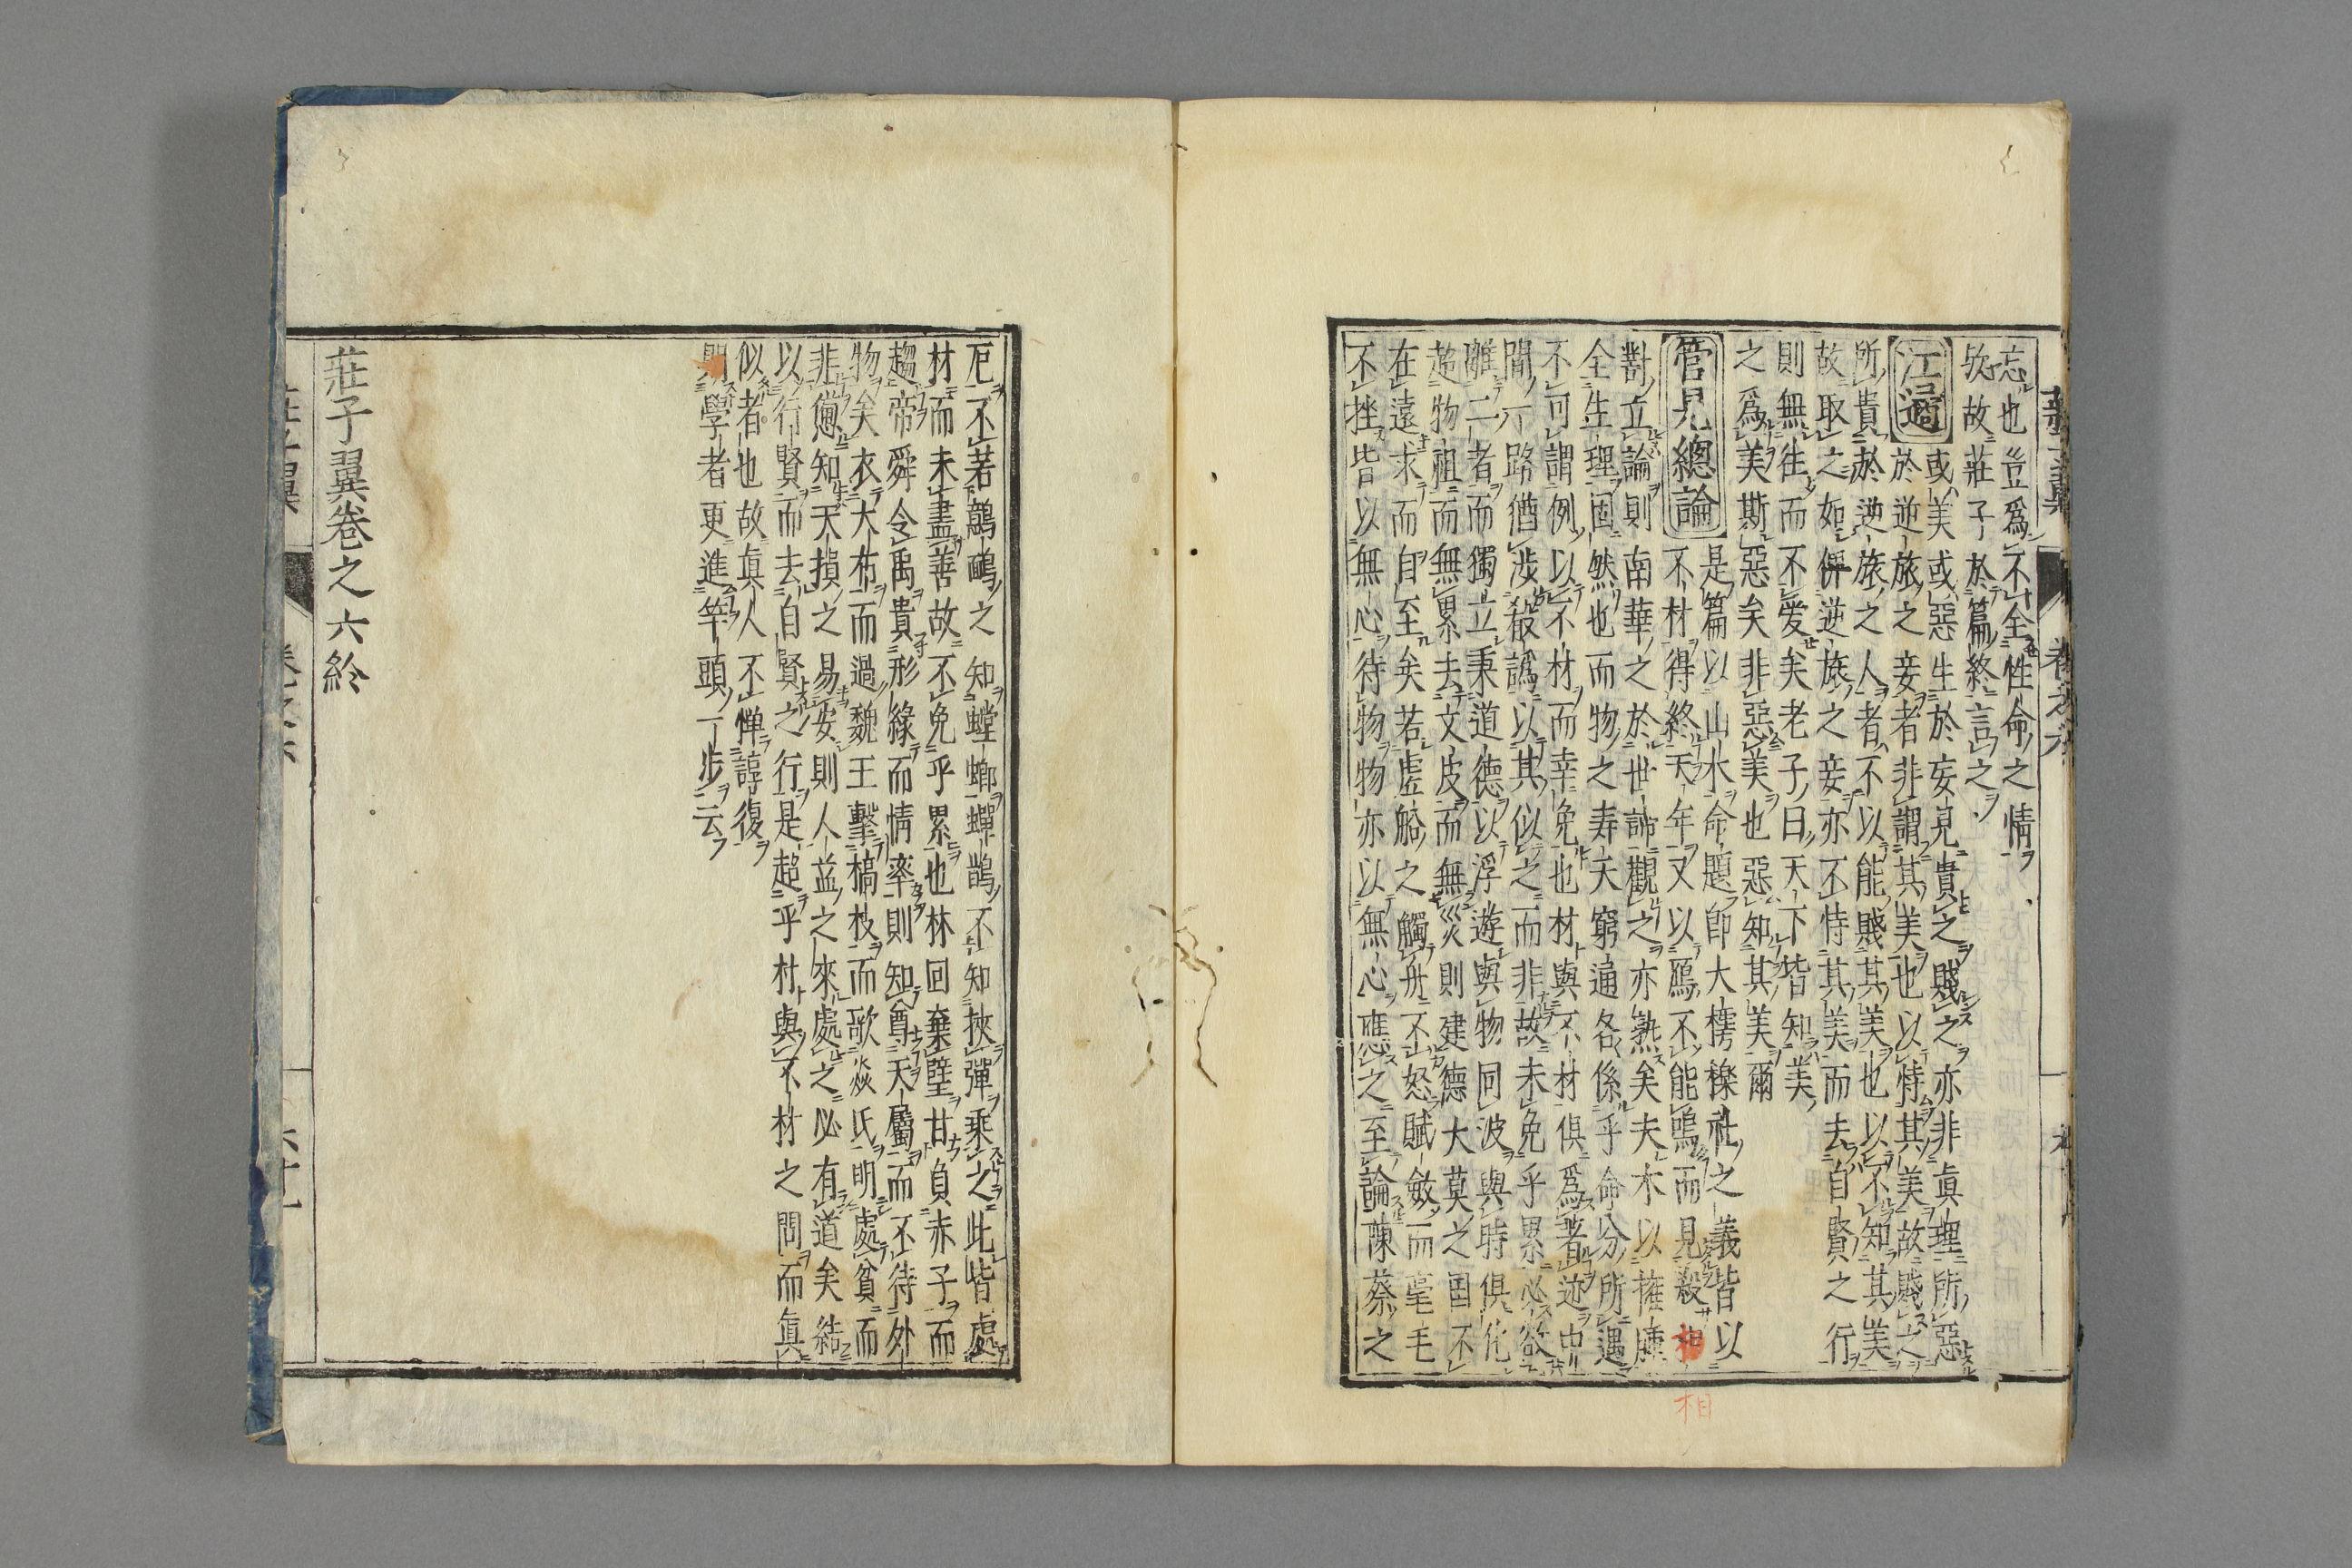 忘也豈爲不全性命之情
欤故莊子於篇終言之
江遹
或美或惡生於妄見貴之賤之亦非眞理所惡
於逆旅之妾者非謂其美也以恃其美故賤之
所貴於逆旅之人者不以能賤其美也以不知其美
故取之如俾逆旅之妾亦不恃其美而去自賢之行
則無往而不愛矣老子曰天下皆知美
之爲美斯惡矣非惡美也惡知其美爾
管見總論
是篇以山木命題卽大樗櫟社之義皆以
不材得終天年又以鴈不能鳴而見殺相
對立論則南華之於世諦觀之亦熟矣夫木以擁腫
全生理固然也而物之壽夭窮通各係乎命分所遇
不可謂例以不材而幸免也材與不材俱爲著迹中
間一路猶涉殽譌以其似之而非故未免乎累必欲
離二者而獨立秉道德以浮遊與物同波與時俱化
超物祖而無累去文皮而無災則建德大莫之国不
在遠求而自至矣若虛舩之觸舟不怒賦斂而毫毛
不挫皆以無心待物物亦以無心應之至論陳蔡之
厄不若鷾鴯之知螳螂蟬鵲不知挾彈乘之此皆處
材而未盡善故不免乎累也林回棄璧甘負赤子而
趨帝舜令禹貴形緣而情率則知尊天屬而不待外
物矣衣大布而過魏王擊槁枝而歌焱氏明處貧而
非憊知天損之易安則人益之來處之必有道矣結
以行賢而去自賢之行是超乎材與不材之間而眞
似者也故眞人不憚諄復
期學者更進竿頭一步云
莊子翼卷之六終
相